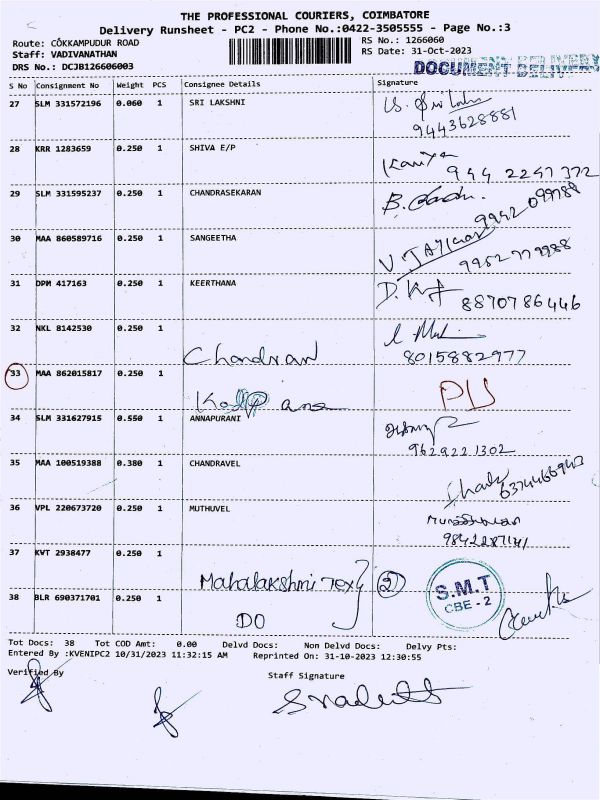 THE PROFESSIONAL COURIERS, COIMBATORE
Delivery Runsheet - PC2 - Phone No.:0422-3505555 - Page No.:3
Route: COKKAMPUDUR ROAD RS No.: 1266060
Staff: VADIVANATHAN RS Date: 31-Oct-2023
DRS No.: DCJB126606003 DOCUMENT DELIVERY
S No Consignment No Weight PCS Consignee Details Signature
27 SLM 331572196 0.060 1 SRI LAKSHNI
9443628881
28 KRR 1283659 0.250 1 SHIVA E/P
944 2247 372
29 SLM 331595237 0.250 1 CHANDRASEKARAN
30 MAA 860589716 0.250 1 SANGEETHA
31 DPM 417163 0.250 1 KEERTHANA
8870786446
32 NKL 8142530 0.250 1 Chandran
8015882977
33 MAA 862015817 0.250 1
34 SLM 331627915 0.550 1 ANNAPURANI
9629221302
35 MAA 100519388 0.380 1 CHANDRAVEL
36 VPL 220673720 0.250 1 MUTHUVEL
37 KVT 2938477 0.250 1
Mahalakshmi Tex 2 S.M.T
CBE - 2
38 BLR 690371701 0.250 1 DO
Tot Docs: 38 Tot COD Amt: 0.00 Delvd Docs: Non Delvd Docs: Delvy Pts:
Entered By :KVENIPC2 10/31/2023 11:32:15 AM Reprinted On: 31-10-2023 12:30:55
Verified By Staff Signature